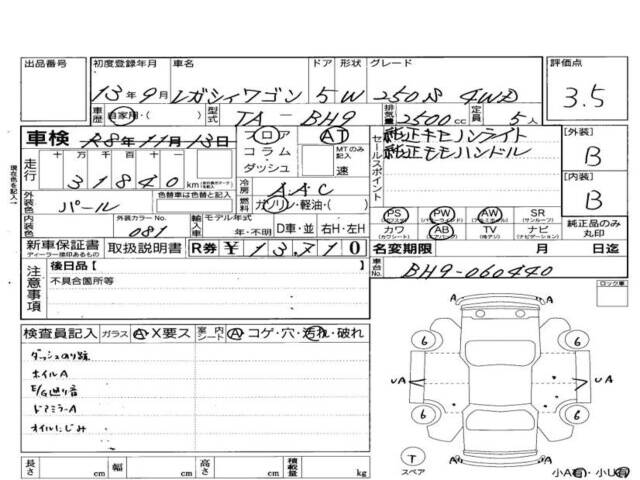 出品番号 初度登録年月 車名 ドア 形状 グレード 評価点
13年9月 レガシィワゴン 5 W 250S 4WD 3.5
車歴 自家用・( ) 型式 TA-BH9 排気量 2500cc 定員 5人
車検 R8年11月13日 フロア AT セールスポイント 純正キセノンライト [外装]
現在色を記入 走行 十万 万 千 百 十 コラム MTのみ記入 純正モモハンドル B
31840km ダッシュ 速 [内装]
外装色 パール 色替車は色替と記入 冷房 AAC B
燃料 ガソリン・軽油・( ) PS PW AW SR
内装色 外装カラーNo. 081 輸入車 モデル年式 カワ AB TV ナビ 純正品のみ丸印
年・不明 D車・並 右H・左H
新車保証書 取扱説明書 R券 ¥13,710 名変期限 月 日迄
ディーラー捺印あるもの
注意事項 後日品【 】 車台No. BH9-060440
不具合箇所等 ロック車
検査員記入 ガラス A・X要ス 室内シート A・コゲ・穴・汚れ・破れ
ダッシュのり跡 6 6
ホイルA UA UA
E/G廻り音
ドアミラーA 6 6
オイルにじみ
T
スペア
長さ cm 幅 cm 高さ cm 積載量 kg 小A有・小U有